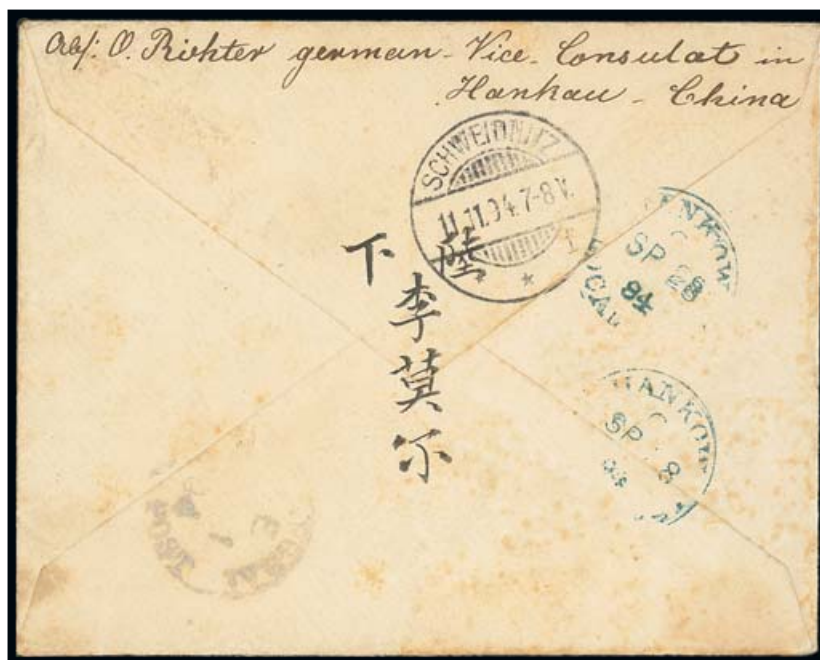 Abs: O. Richter german-Vice-Consulat in
Hankau - China
SCHWEIDNITZ
11.11.94.7-8V.
1
HANKOW
SP
94
LOCAL
HANKOW
SP
下陸
李莫尔
POST